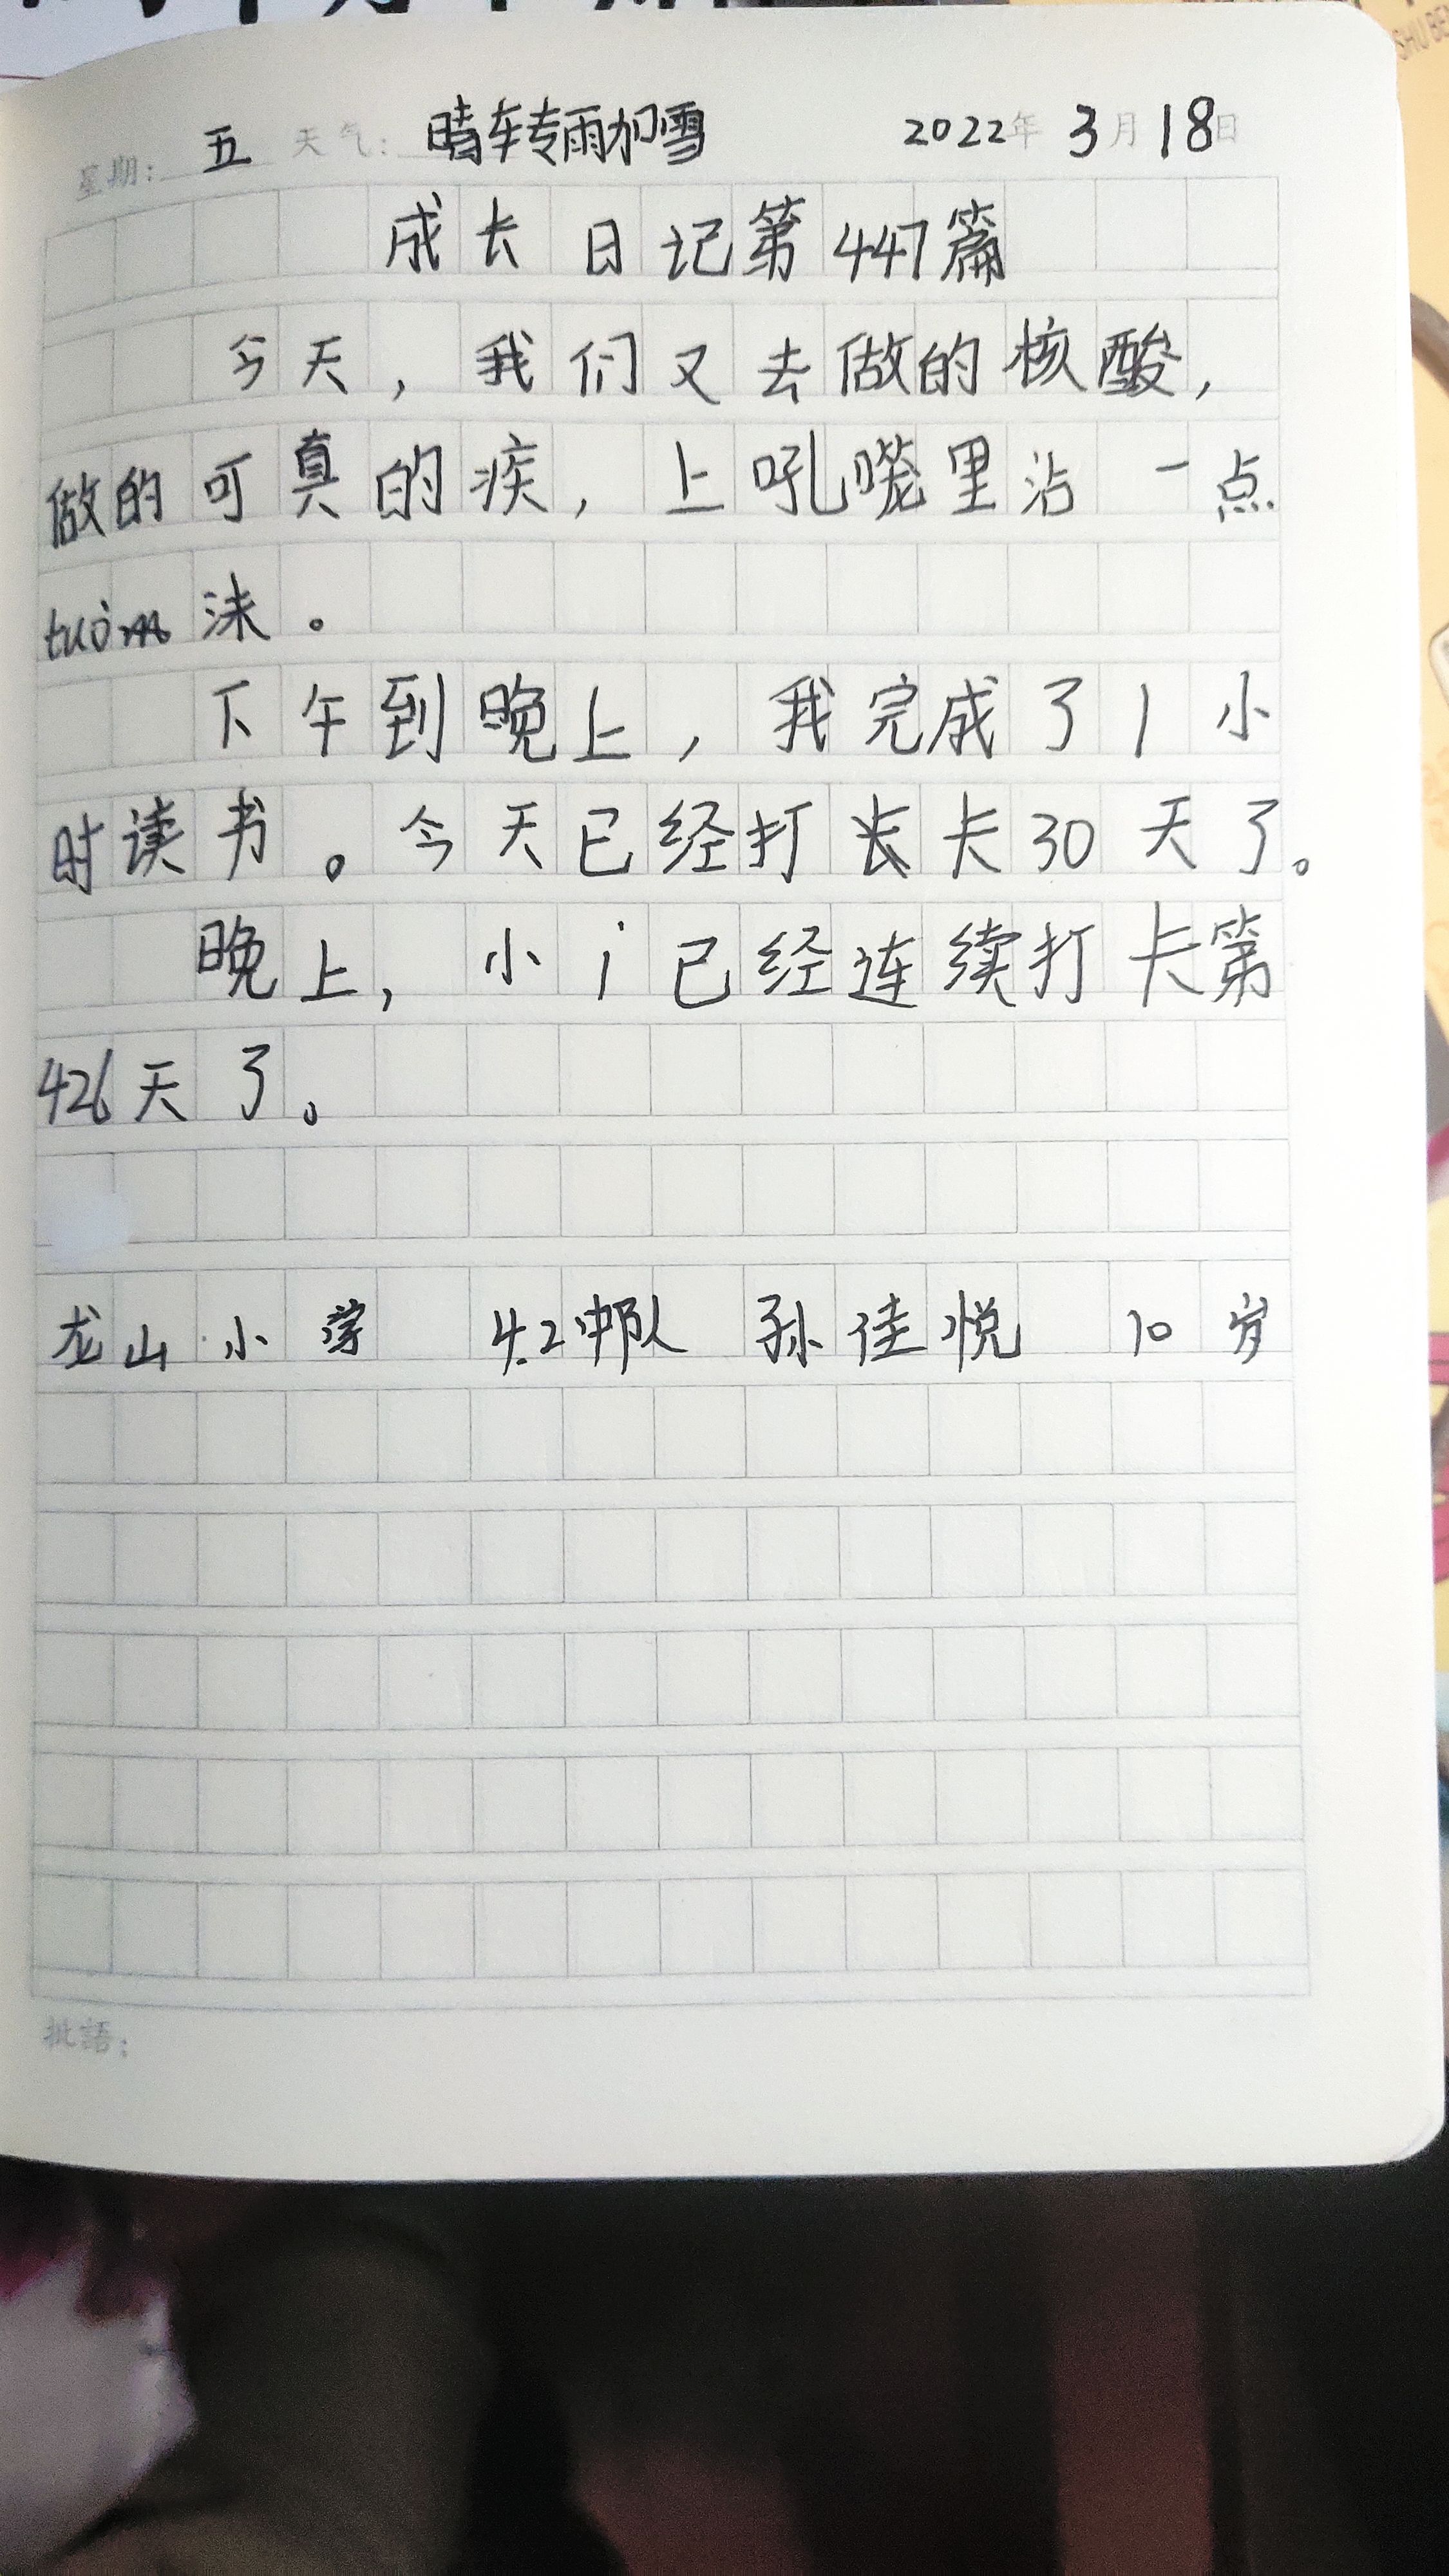 星期: 五 天气: 晴转雨加雪 2022年 3月 18日
成长日记第447篇
今天,我们又去做的核酸,
做的可真的疾,上吼嘴里沾一点
tuò 沫。
下午到晚上,我完成了1小
时读书。今天已经打卡30天了。
晚上,小j已经连续打卡第
426天了。
龙山小学 4.2中队 孙佳悦 10岁
批語: